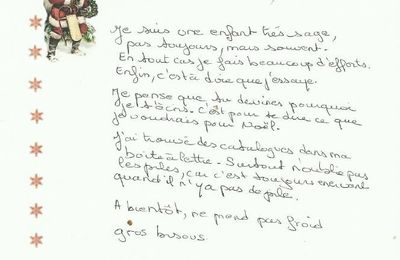 Je suis une enfant très sage,
pas toujours, mais souvent.
En tout cas je fais beaucoup d'efforts.
Enfin, c'est à dire que j'essaye.
Je pense que tu devines pourquoi
je t'écris. c'est pour te dire ce que
je voudrais pour Noël.
J'ai trouvé des catalogues dans ma
boîte à lettre. Surtout n'oublie pas
les piles, car c'est toujours enervant
quand il n'y a pas de pile.
A bientôt, ne prend pas froid
gros bisous.